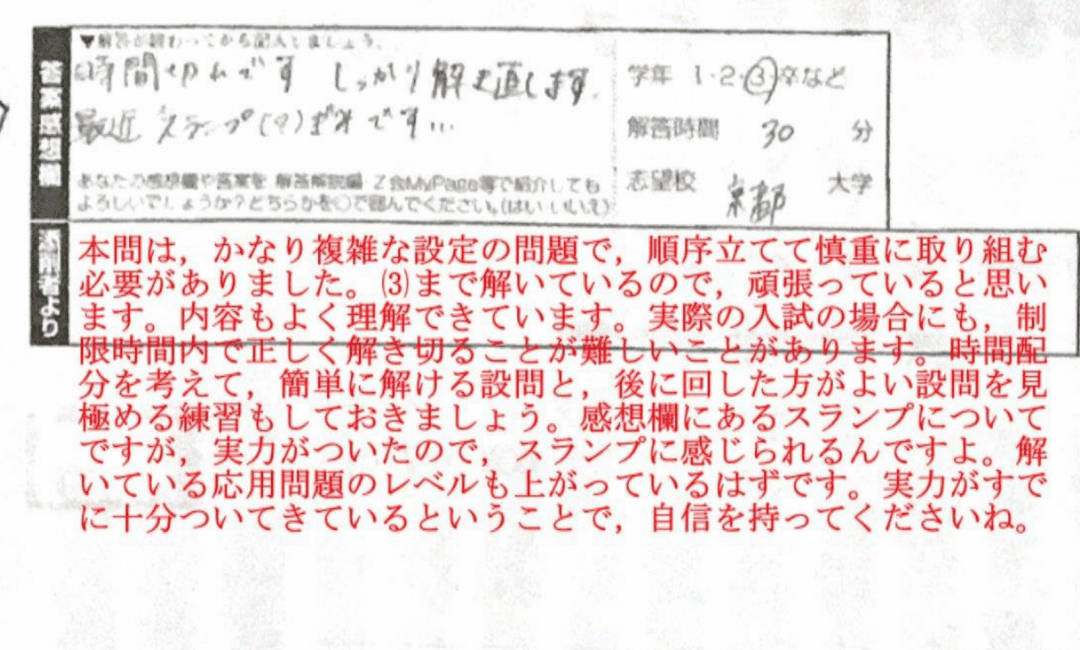 答案感想欄
▼解答が終わってから記入しましょう。
時間切れです しっかり解き直します.
最近 スランプ(?)ぎみです…
あなたの感想欄や答案を 解答解説編・Z会MyPage等で紹介しても
よろしいでしょうか?どちらかを○で囲んでください。(はい いいえ)
学年 1・2・③卒など
解答時間 30 分
志望校 京都 大学
添削者より
本問は,かなり複雑な設定の問題で,順序立てて慎重に取り組む
必要がありました。⑶まで解いているので,頑張っていると思い
ます。内容もよく理解できています。実際の入試の場合にも,制
限時間内で正しく解き切ることが難しいことがあります。時間配
分を考えて,簡単に解ける設問と,後に回した方がよい設問を見
極める練習もしておきましょう。感想欄にあるスランプについて
ですが,実力がついたので,スランプに感じられるんですよ。解
いている応用問題のレベルも上がっているはずです。実力がすで
に十分ついてきているということで,自信を持ってくださいね。